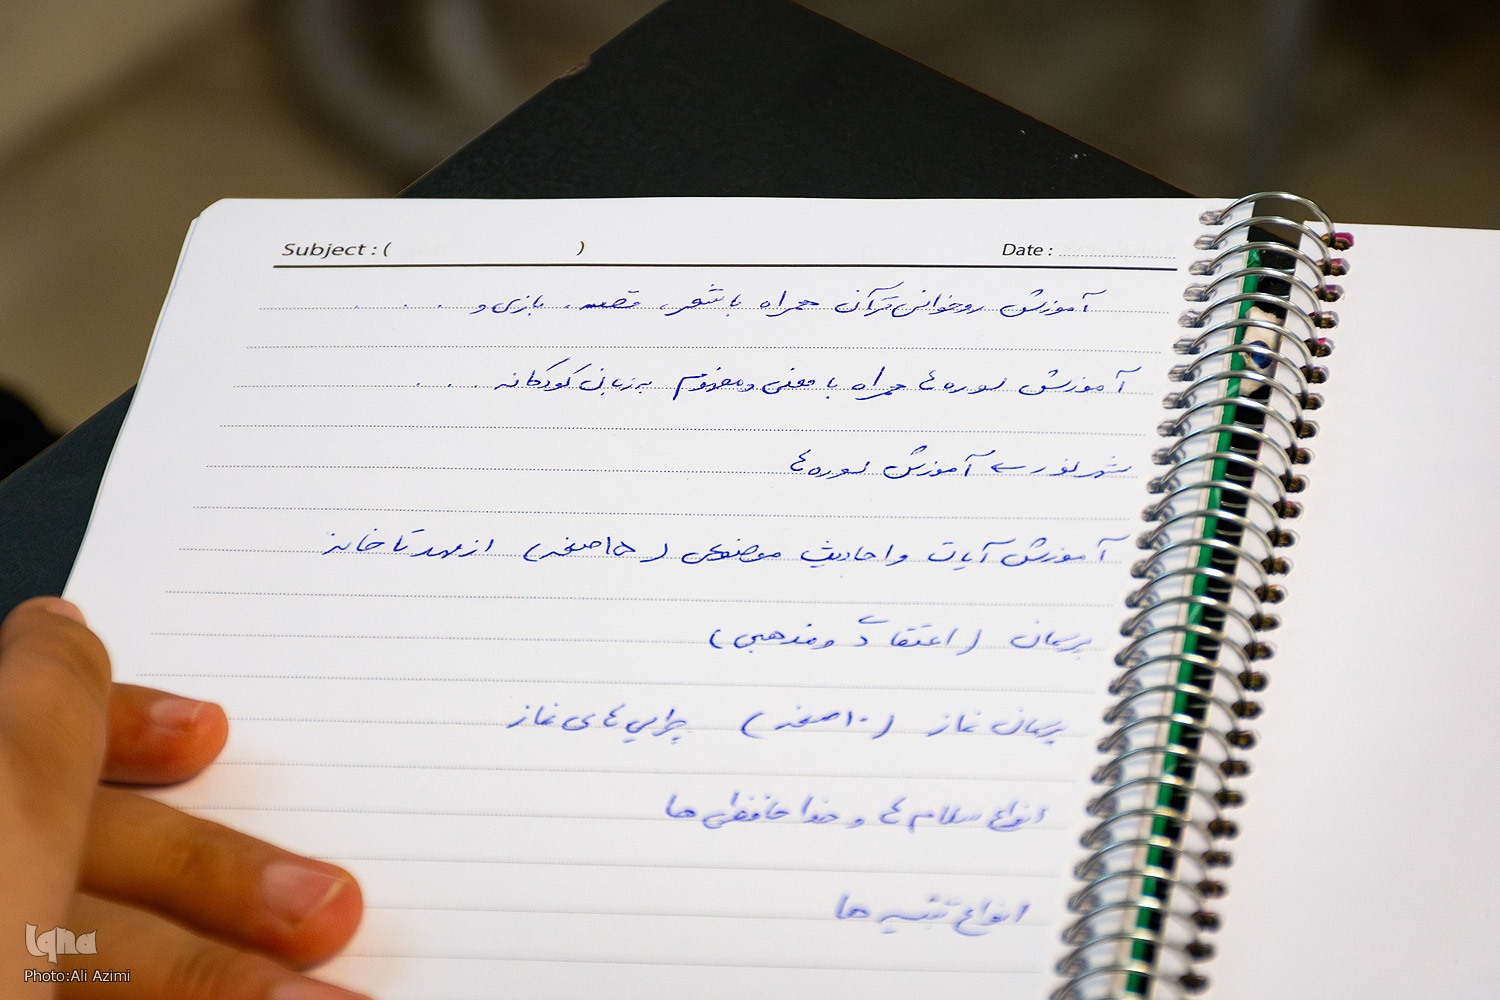 Subject : ( )
Date :
آموزش روخوانی قرآن همراه با شعر، قصه، بازی و . . . .
آموزش سوره ها همراه با معنی و مفهوم به زبان کودکانه . . .
آموزش سوره ها
آموزش آیات و احادیث موضوعی (۱۵ صفحه) از مهد تا خانه
پرسمان (اعتقادی و مذهبی)
پرسمان نماز (۱۰ صفحه) چرایی های نماز
انواع سلام ها و خداحافظی ها
انواع تنبیه ها
Iqna
Photo:Ali Azimi